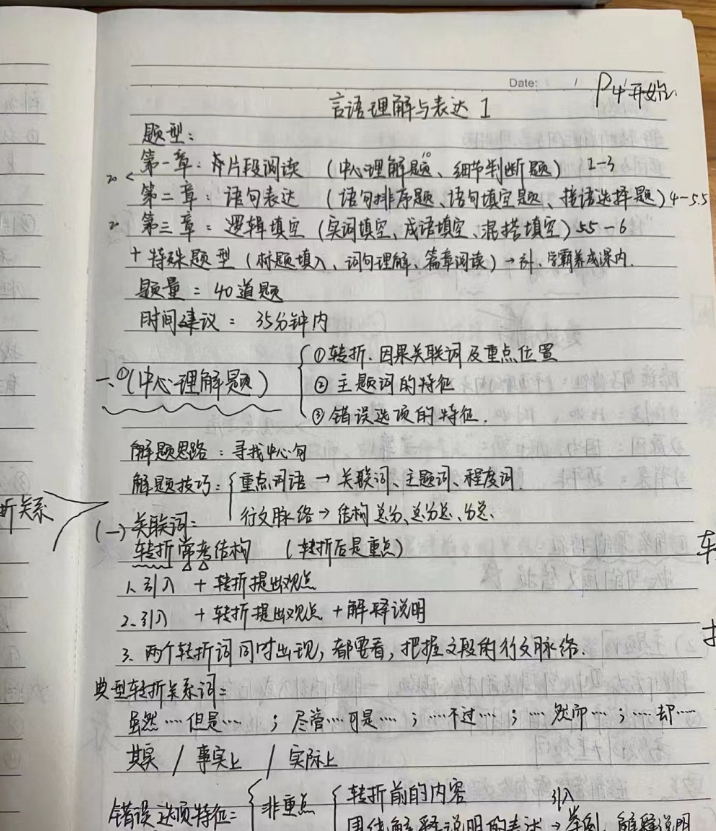 Date: P4开始
言语理解与表达 1
题型:
第一章: 片段阅读 (中心理解题、细节判断题) 1-3
第二章: 语句表达 (语句排序题、语句填空题、接语选择题) 4-5.5
第三章: 逻辑填空 (实词填空、成语填空、混搭填空) 5.5-6
+ 特殊题型 (标题填入、词句理解、篇章阅读) → 课内.
题量 = 40道题
时间建议: 35分钟内
一、(中心理解题)
① 转折、因果关联词及重点位置
② 主题词的特征
③ 错误选项的特征.
解题思路: 寻找中心句
解题技巧: 重点词语 → 关联词、主题词、程度词
行文脉络 → 结构 总分、总分总、分总.
(一) 关联词:
折关系
转折常考结构 (转折后是重点)
1. 引入 + 转折提出观点
2. 引入 + 转折提出观点 + 解释说明
3. 两个转折词同时出现, 都要看, 把握文段的行文脉络.
典型转折关系词:
虽然……但是…… ; 尽管……可是…… ; ……不过…… ; ……然而…… ; ……却……
其实 / 事实上 / 实际上
错误选项特征: 非重点 转折前的内容 引入
围绕解释说明的表达 → 举例、解释说明